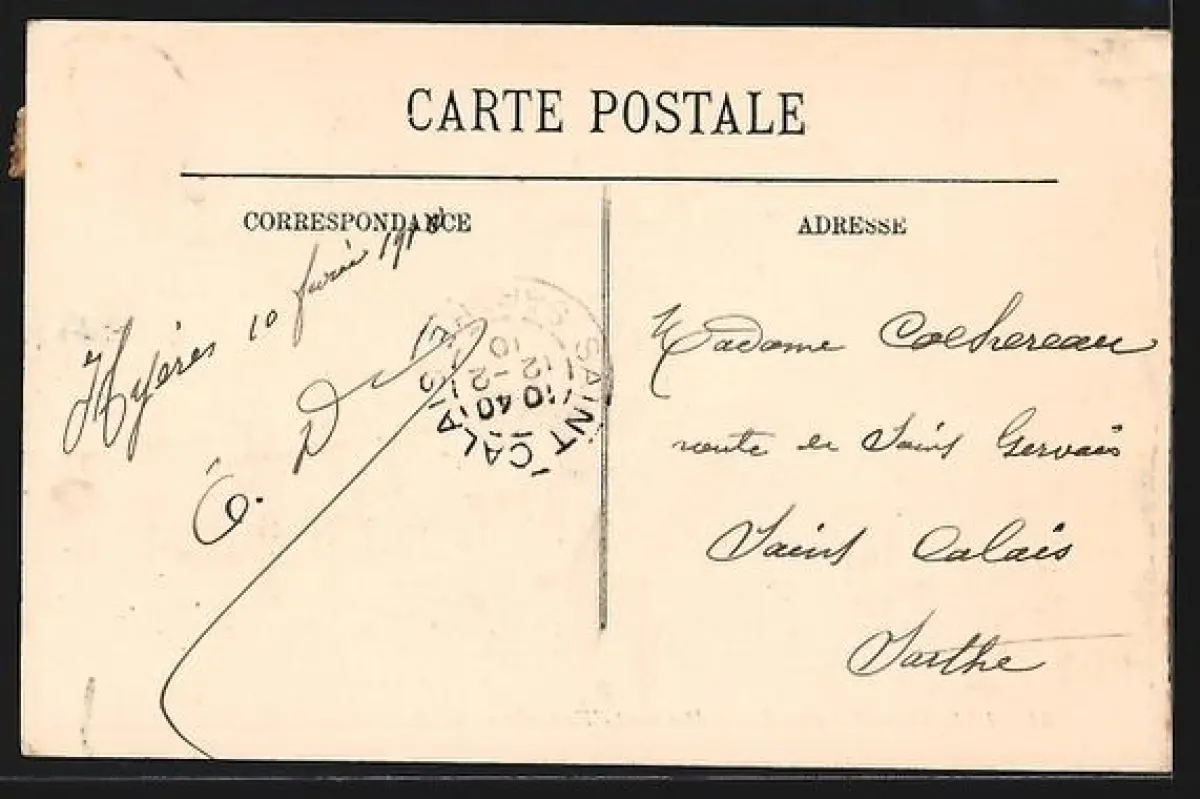 CARTE POSTALE
CORRESPONDANCE
ADRESSE
Hyères 10 février
Madame
route de Saint Gervais
Saint Calais
Sarthe
SAINT CALAIS
10 40
12 - 2
10